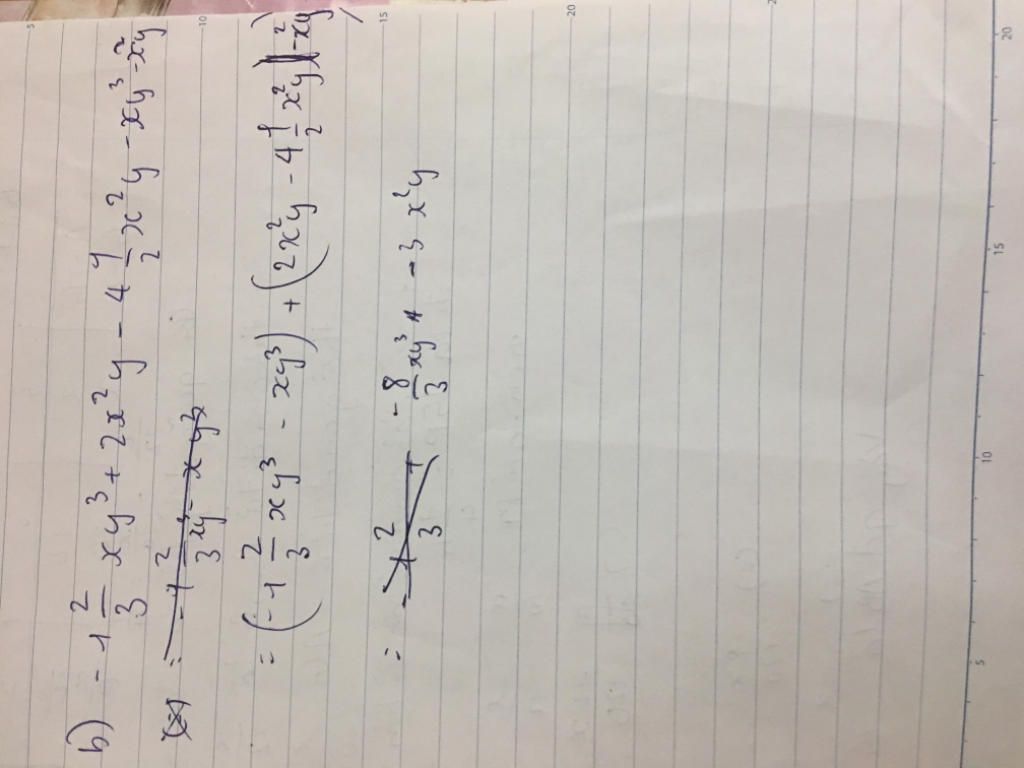 b) - 1 2/3 xy³ + 2x²y - 4 1/2 x²y - xy³ - x²y
= - 1 2/3 xy³ - xy³
= (- 1 2/3 xy³ - xy³) + (2x²y - 4 1/2 x²y - x²y)
= - 8/3 xy³ + - 3 x²y
5
10
15
20
5
10
15
20